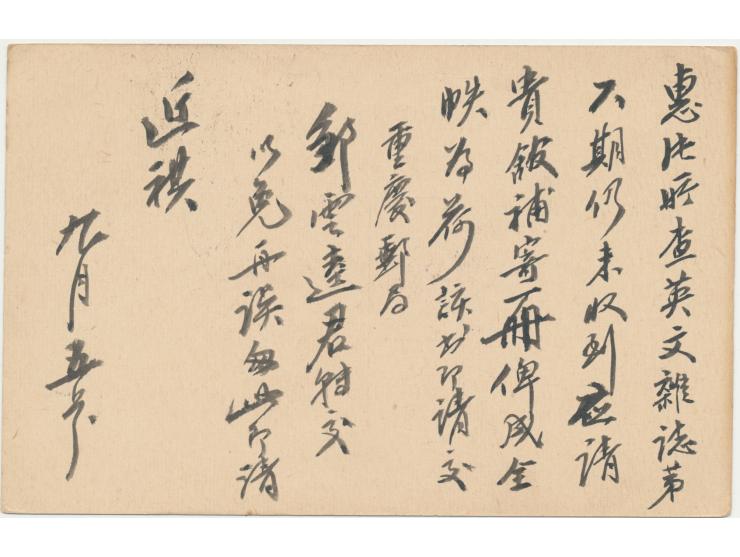 惠比時查英文雜誌第
六期仍未收到應請
貴館補寄一冊俾成全
帙為荷該書即請交
重慶郵局
鄧雲逵君轉交
以免再誤匆此即請
近祺
九月五號